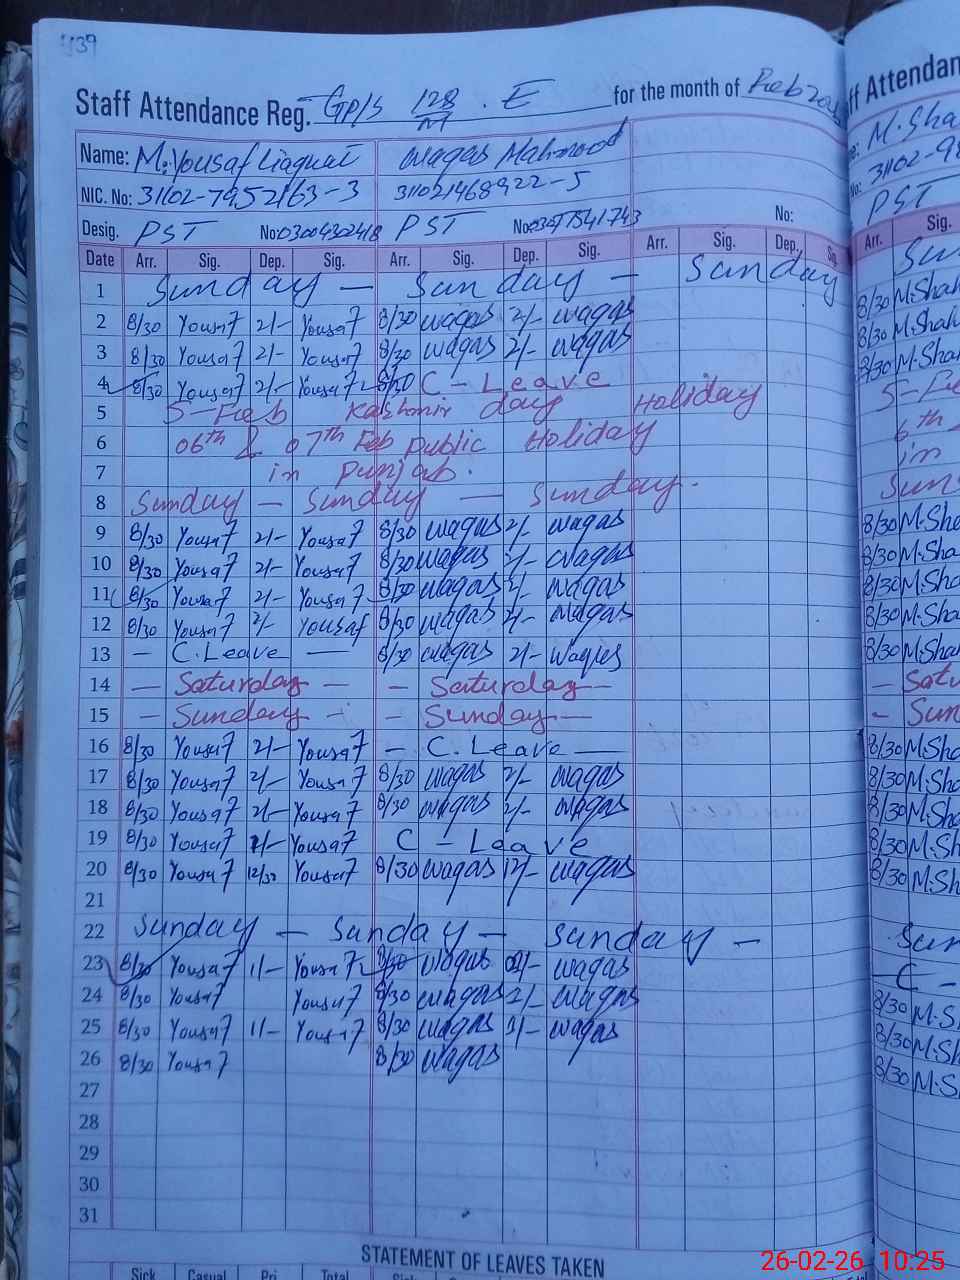 439
Staff Attendance Reg. GP/S 128/M . E for the month of Feb
Name: M. Yousaf Liaquat Waqas Mahmood
NIC. No: 31102-7952163-3 311021468922-5
Desig. PST No:03004302418 PST No:03077541743 No:
Date Arr. Sig. Dep. Sig. Arr. Sig. Dep. Sig. Arr. Sig. Dep. Sig.
1 Sunday — Sunday — Sunday
2 8/30 Yousaf 2/- Yousaf 8/30 waqas 2/- waqas
3 8/30 Yousaf 2/- Yousaf 8/30 waqas 2/- waqas
4 8/30 Yousaf 2/- Yousaf C - Leave
5 5-Feb Kashmir day Holiday
6 06th & 07th Feb public Holiday
7 in Punjab.
8 Sunday — Sunday — Sunday.
9 8/30 Yousaf 2/- Yousaf 8/30 waqas 2/- waqas
10 8/30 Yousaf 2/- Yousaf 8/30 waqas 2/- waqas
11 8/30 Yousaf 2/- Yousaf 8/30 waqas 2/- waqas
12 8/30 Yousaf 2/- Yousaf 8/30 waqas 2/- waqas
13 — C.Leave — 8/30 waqas 2/- waqas
14 — Saturday — — Saturday —
15 — Sunday — — Sunday —
16 8/30 Yousaf 2/- Yousaf — C.Leave —
17 8/30 Yousaf 2/- Yousaf 8/30 waqas 2/- waqas
18 8/30 Yousaf 2/- Yousaf 8/30 waqas 2/- waqas
19 8/30 Yousaf Yousaf C - Leave
20 8/30 Yousaf 12/30 Yousaf 8/30 waqas 12/- waqas
21
22 Sunday — Sunday — Sunday —
23 8/30 Yousaf 1/- Yousaf 8/30 waqas waqas
24 8/30 Yousaf Yousaf 8/30 waqas 2/- waqas
25 8/30 Yousaf 1/- Yousaf 8/30 waqas waqas
26 8/30 Yousaf 8/30 waqas
27
28
29
30
31
STATEMENT OF LEAVES TAKEN
Sick Casual Pri Total Sick Casual
ff Attendan
M. Sha
31102-98
PST
Arr. Sig.
Sun
8/30 M.Shah
8/30 M.Shah
8/30 M.Shah
5-Fe
6th
in
Sun
8/30 M.Sha
8/30 M.Sha
8/30 M.Sha
8/30 M.Sha
8/30 M.Sha
— Satu
- Sun
8/30 M.Sha
8/30 M.Sha
8/30 M.Sha
8/30 M.Sh
8/30 M.Sh
Sun
— C -
8/30 M.S
8/30 M.Sh
8/30 M.S
26-02-26 10:25